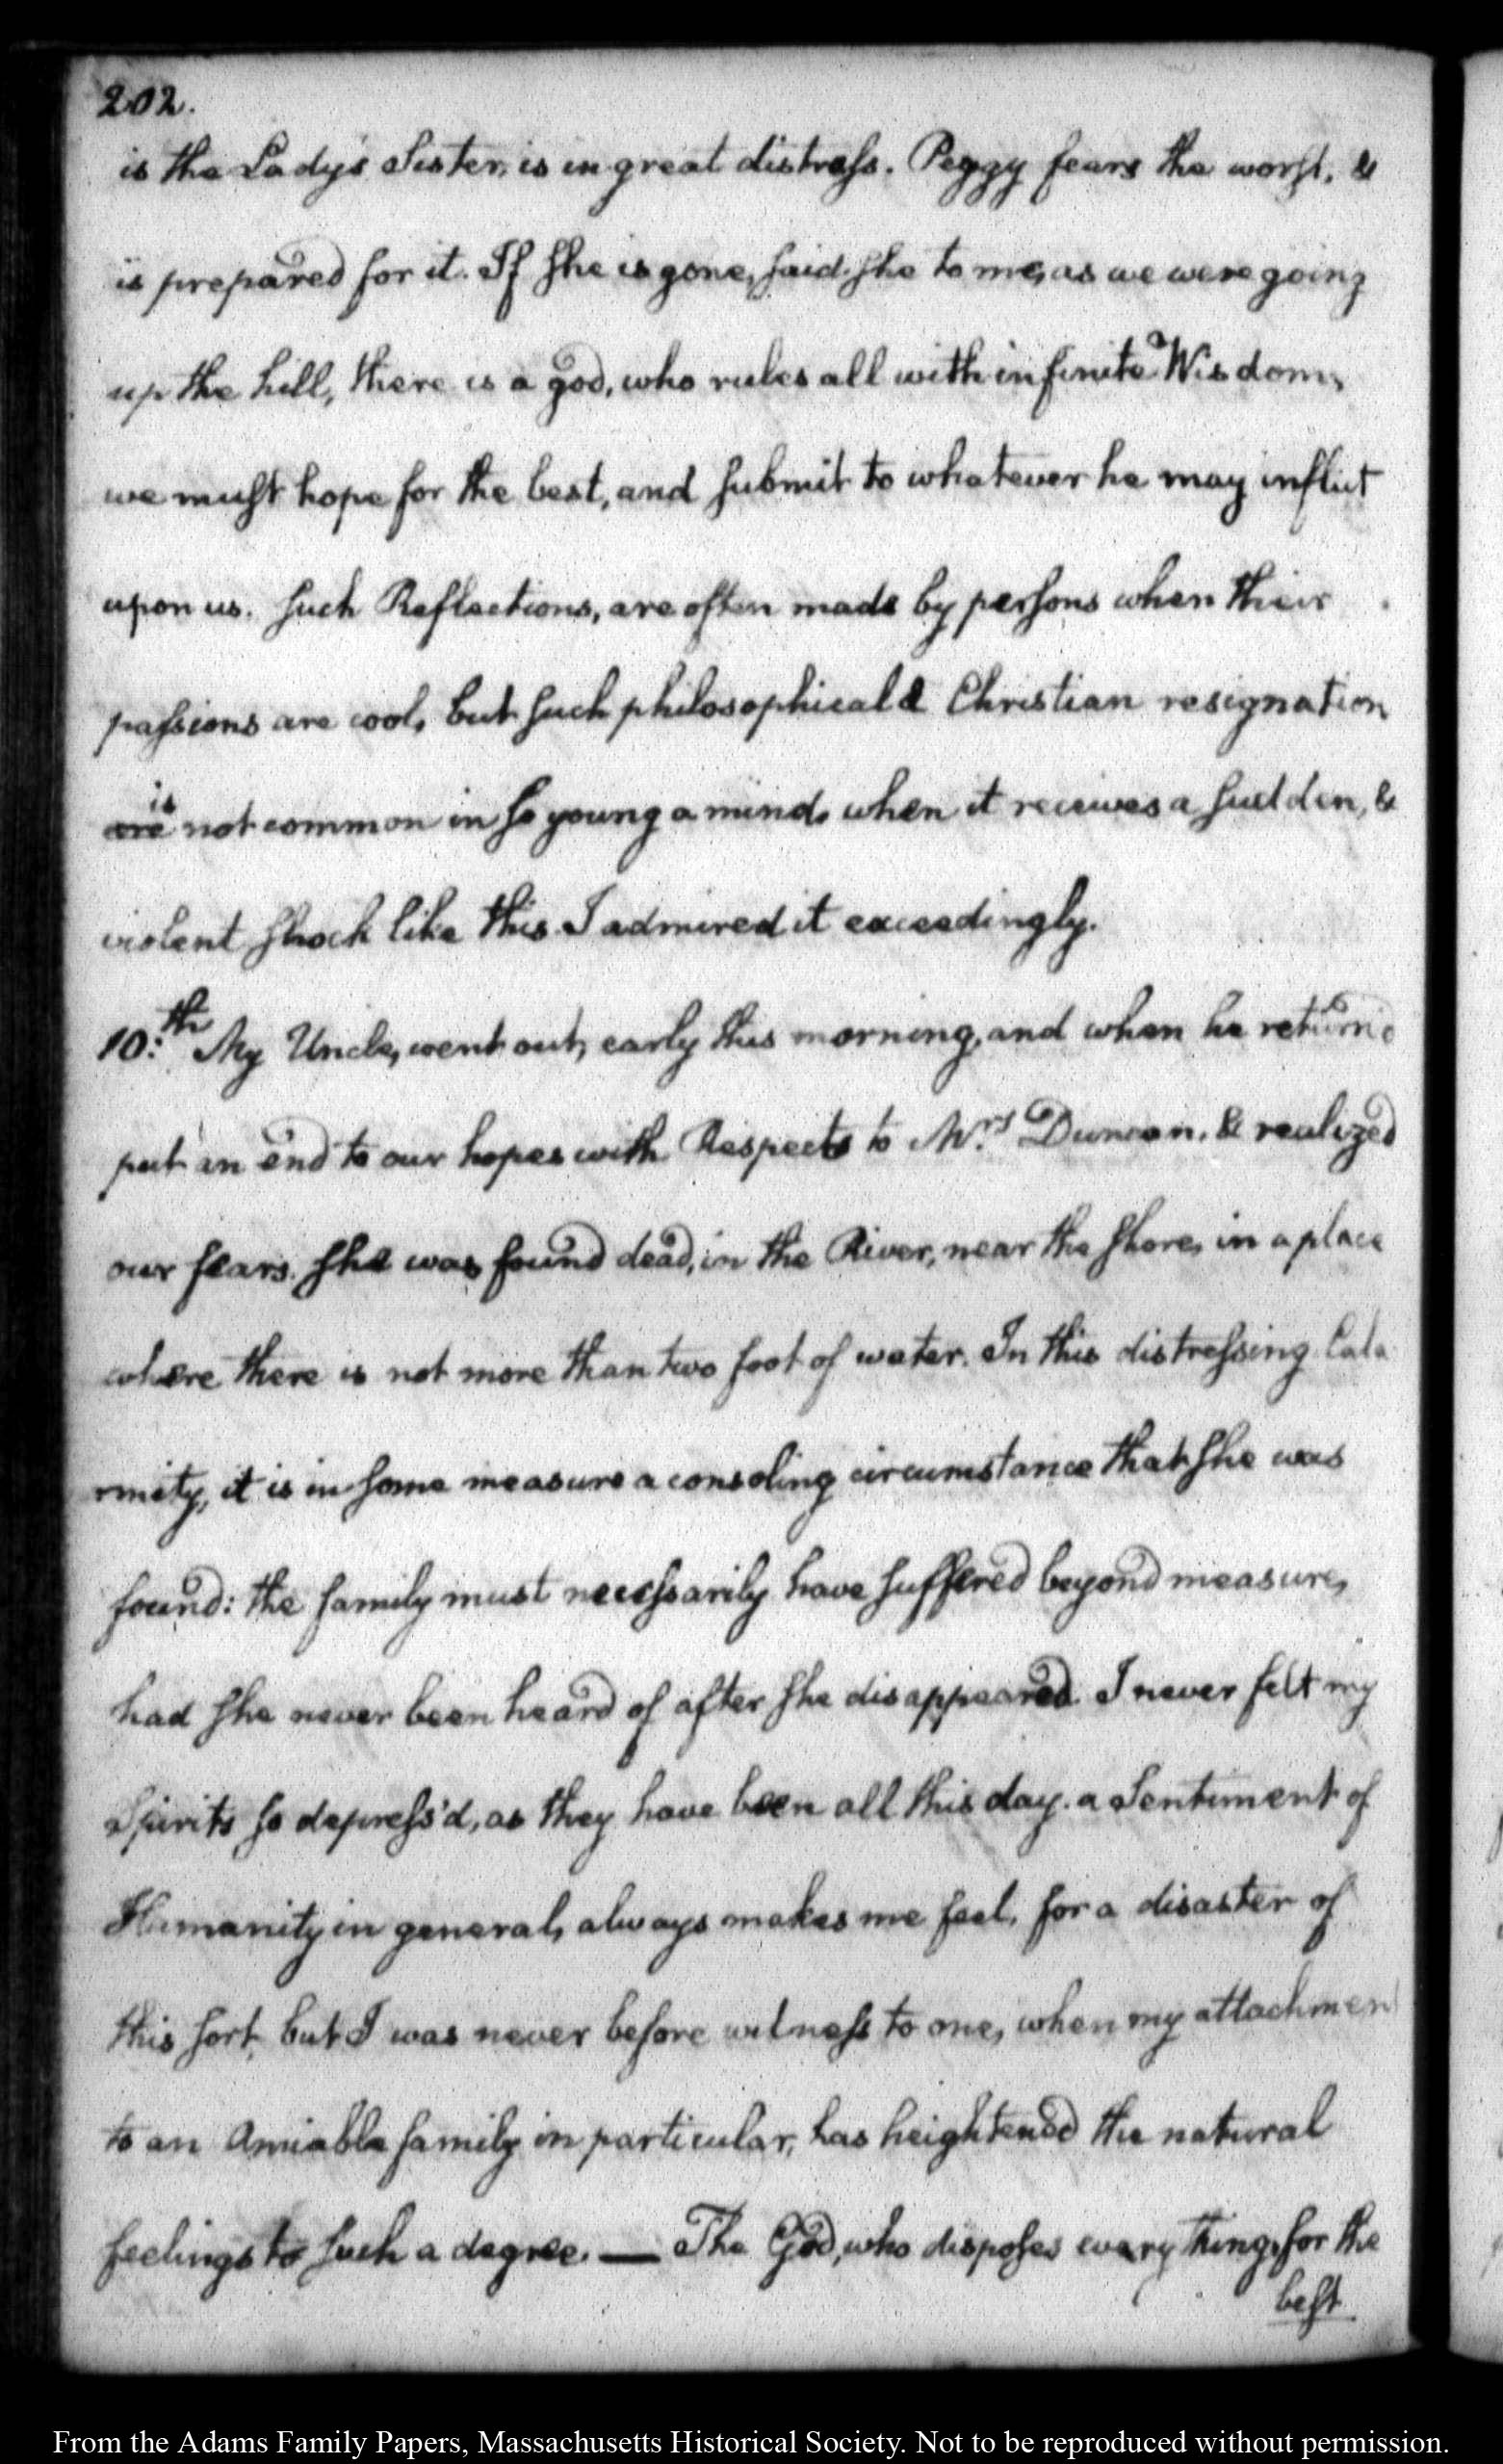 202.
is the Lady's Sister, is in great distress. Peggy fears the worst, &
is prepared for it. If she is gone, said she to me, as we were going
up the hill, there is a god, who rules all with infinite Wisdom,
we must hope for the best, and submit to whatever he may inflict
upon us. Such Reflections, are often made by persons when their
passions are cool, but such philosophical & Christian resignation
is
are not common in so young a mind, when it receives a sudden, &
violent shock like this. I admired it exceedingly.
10:th My Uncle, went out, early this morning, and when he return'd
put an end to our hopes with Respects to Mrs Duncan, & realized
our fears. She was found dead, in the River, near the shore, in a place
where there is not more than two foot of water. In this distressing Cala
mity, it is in some measure a consoling circumstance that she was
found: the family must necessarily have suffered beyond measure,
had she never been heard of after she disappeared. I never felt my
Spirits so depress'd, as they have been all this day. a Sentiment of
Humanity in general, always makes me feel, for a disaster of
this sort, but I was never before witness to one, when my attachment
to an Amiable family in particular, has heightened the natural
feelings to such a degree. — The God, who disposes every thing, for the
best
From the Adams Family Papers, Massachusetts Historical Society. Not to be reproduced without permission.